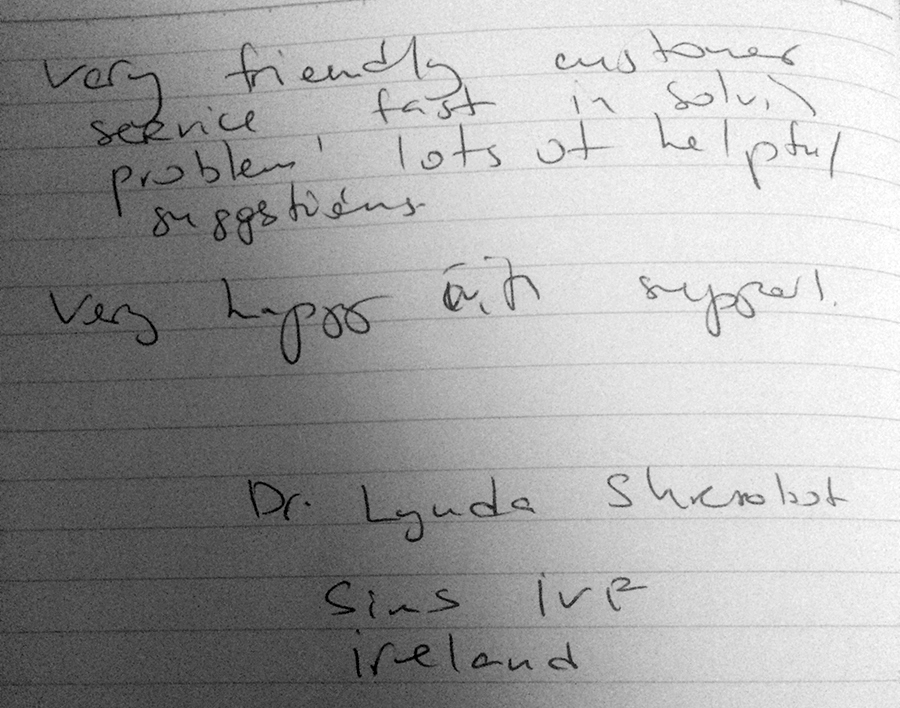 very friendly customer
service fast in solving
problem, lots of helpful
suggstions
Very happy with support.
Dr. Lynda
Sims IVF
ireland